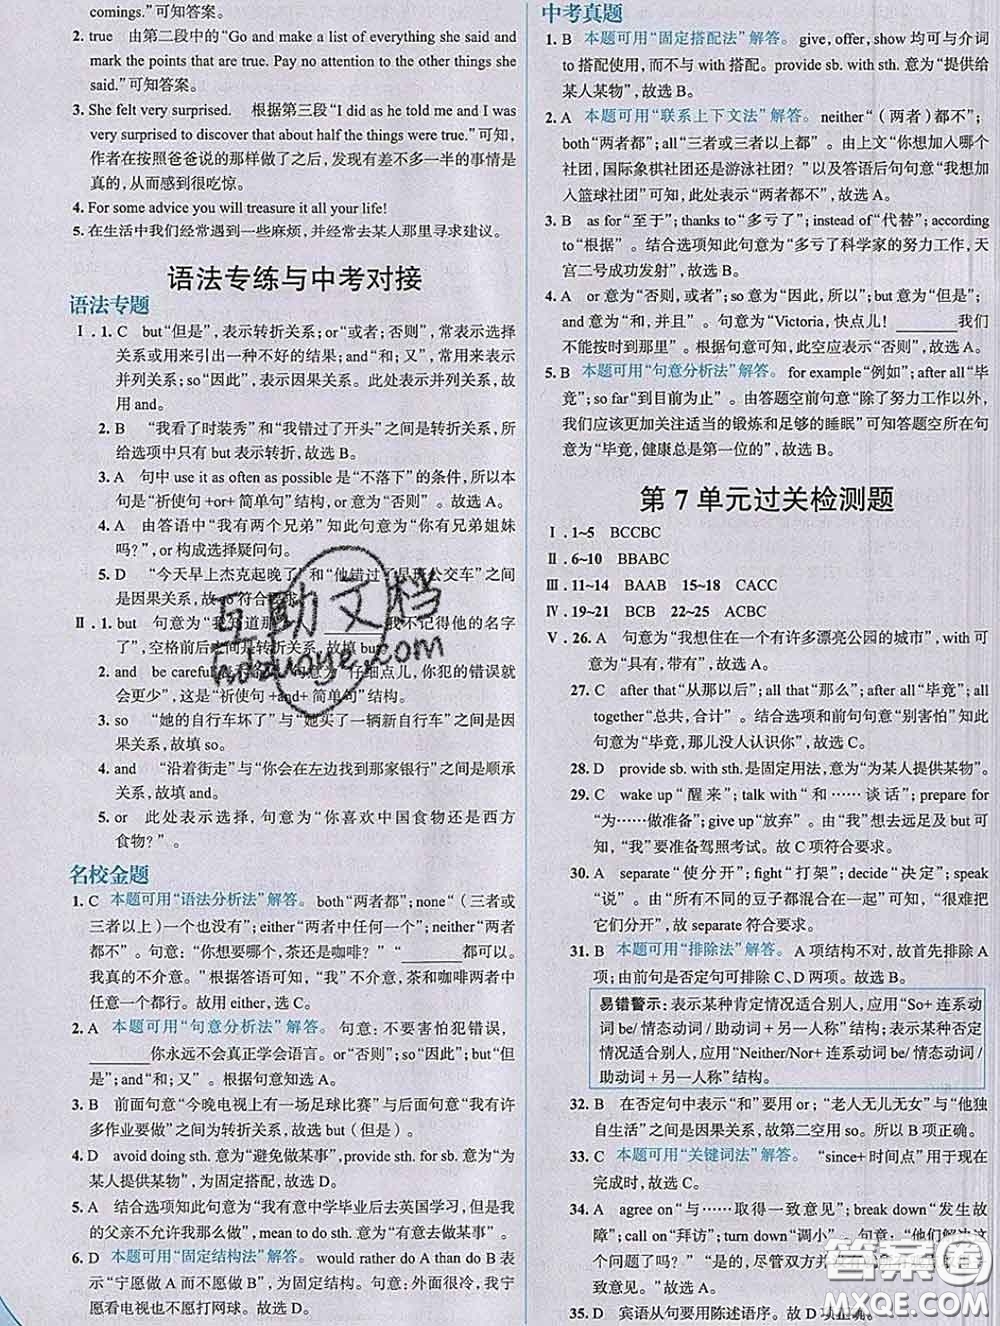 comings.”可知答案。
2. true 由第二段中的“Go and make a list of everything she said and
mark the points that are true. Pay no attention to the other things she
said.”可知答案。
3. She felt very surprised. 根据第三段“I did as he told me and I was
very surprised to discover that about half the things were true.”可知，
作者在按照爸爸说的那样做了之后，发现有差不多一半的事情是
真的，从而感到很吃惊。
4. For some advice you will treasure it all your life!
5. 在生活中我们经常遇到一些麻烦，并经常去某人那里寻求建议。
语法专练与中考对接
语法专题
Ⅰ. 1. C but“但是”，表示转折关系；or“或者；否则”，常表示选择
关系或用来引出一种不好的结果；and“和；又”，常用来表示
并列关系；so“因此”，表示因果关系。此处表示并列关系，故
用 and。
2. B “我看了时装秀”和“我错过了开头”之间是转折关系，所
给选项中只有 but 表示转折，故选 B。
3. A 句中 use it as often as possible 是“不落下”的条件，所以本
句是“祈使句 +or+ 简单句”结构，or 意为“否则”。故选 A。
4. A 由答语中“我有两个兄弟”知此句意为“你有兄弟姐妹
吗？”，or 构成选择疑问句。
5. D “今天早上杰克起晚了”和“他错过了早班公交车”之间
是因果关系，故 so 符合要求。
Ⅱ. 1. but 句意为“我知道那 ______ 我不记得他的名字
了”，空格前后之间是转折关系，故填 but。
2. and be careful 表示 句意为“仔细点儿，你犯的错误就
会更少”，这是“祈使句 +and+ 简单句”结构。
3. so “她的自行车坏了”与“她买了一辆新自行车”之间是因
果关系，故填 so。
4. and “沿着街走”与“你会在左边找到那家银行”之间是顺承
关系，故填 and。
5. or 此处表示选择，句意为“你喜欢中国食物还是西方
食物？”。
名校金题
1. C 本题可用“语法分析法”解答。both“两者都”；none“（三者或
三者以上）一个也没有”；either“两者中任何一个”；neither“两者
都不”。句意：“你想要哪个，茶还是咖啡？”“______
我真的不介意。”根据答语可知，“我”不介意，茶和咖啡两者中
任何一个都行。故用 either，选 C。
2. A 本题可用“句意分析法”解答。句意：不要害怕犯错误，
______ 你永远不会真正学会语言。or“否则”；so“因此”；but“但
是”；and“和；又”。根据句意知选 A。
3. B 前面句意“今晚电视上有一场足球比赛”与后面句意“我有许
多作业要做”之间为转折关系，故选 but（但是）。
4. D avoid doing sth. 意为“避免做某事”，provide sth. for sb. 意为
“为某人提供某物”，为固定搭配，故选 D。
5. A 结合选项知此句意为“我有意中学毕业后去英国学习，但是我
的父亲不允许我那么做”，mean to do sth. 意为“有意去做某事”。
6. D 本题可用“固定结构法”解答。would rather do A than do B 表
示“宁愿做 A 而不愿做 B”。句意：外面很冷，我宁
愿看电视也不愿打网球。故选 D。
中考真题
1. B 本题可用“固定搭配法”解答。give, offer, show 均可与介词
to 搭配使用，而不与 with 搭配。provide sb. with sth. 意为“提供给
某人某物”，故选 B。
2. A 本题可用“联系上下文法”解答。neither“（两者）都不”；
both“两者都”；all“三者或三者以上都”。由上文“你想加入哪个
社团，国际象棋社团还是游泳社团？”以及答语后句句意“我想
加入篮球社团”可知，此处表示“两者都不”，故选 A。
3. B as for“至于”；thanks to“多亏了”；instead of“代替”；according
to“根据”。结合选项知此句意为“多亏了科学家的努力工作，天
宫二号成功发射”，故选 B。
4. A or 意为“否则，或者”；so 意为“因此，所以”；but 意为“但是”；
and 意为“和，并且”。句意为“Victoria，快点儿！______ 我们
不能按时到那里”。根据句意可知，此空应表示“否则”，故选 A。
5. B 本题可用“句意分析法”解答。for example“例如”；after all“毕
竟”；so far“到目前为止”。由答题空前句意“除了努力工作以外，
我们应该更加关注适当的锻炼和足够的睡眠”可知答题空所在句
意为“毕竟，健康总是第一位的”，故选 B。
第 7 单元过关检测题
Ⅰ. 1~5 BCCBC
Ⅱ. 6~10 BBABC
Ⅲ. 11~14 BAAB 15~18 CACC
Ⅳ. 19~21 BCB 22~25 ACBC
Ⅴ. 26. A 句意为“我想住在一个有许多漂亮公园的城市”，with 可
意为“具有，带有”，故选 A。
27. C after that“从那以后”；all that“那么”；after all“毕竟”；all
together“总共，合计”。结合选项和前句句意“别害怕”知此
句意为“毕竟，那儿没人认识你”，故选 C。
28. D provide sb. with sth. 是固定用法，意为“为某人提供某物”。
29. C wake up“醒来”；talk with“和……谈话”；prepare for
“为……做准备”；give up“放弃”。由“我”想去远足及 but 可
知，“我”要准备驾照考试。故 C 项符合要求。
30. A separate“使分开”；fight“打架”；decide“决定”；speak
“说”。由“所有不同的豆子都混合在一起”可知，“很难把
它们分开”，故 separate 符合要求。
31. B 本题可用“排除法”解答。A 项结构不对，故首先排除 A
项；由前句是否定句可排除 C、D 两项。故选 B。
易错警示：表示某种肯定情况适合别人，应用“So+ 连系动
词 be/ 情态动词 / 助动词 + 另一人称”结构；表示某种否定
情况适合别人，应用“Neither/Nor+ 连系动词 be/ 情态动词 /
助动词 + 另一人称”结构。
32. B 在否定句中表示“和”要用 or；“老人无儿无女”与“他独
自生活”之间是因果关系，故第二空用 so。所以 B 项正确。
33. C 本题可用“关键词法”解答。“since+ 时间点”用于现在
完成时，故选 C。
34. A agree on“与……取得一致意见”；break down“发生故
障”；call on“拜访”；turn down“调小”。句意：“他们解决这
个问题了吗？”“是的，尽管双方并
致意见。”故选 A。
35. D 宾语从句要用陈述语序。故 D 项正确。
互助文档
hdzuoye.com
答案圈
MXQE.COM